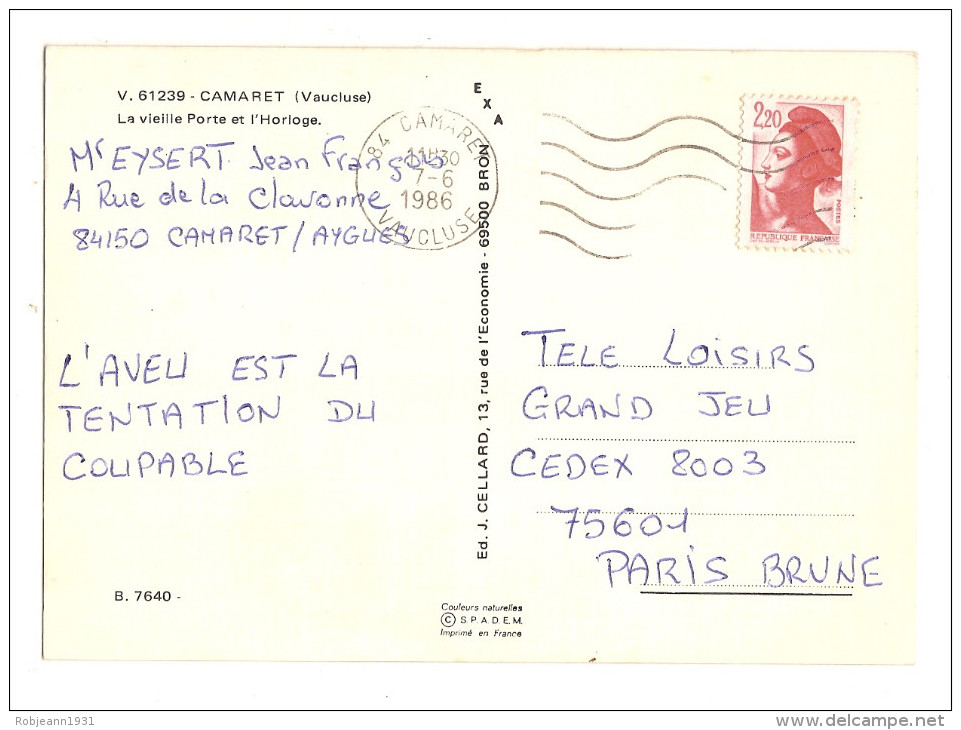 V. 61239 - CAMARET (Vaucluse)
La vieille Porte et l'Horloge.
Mr EYSERT Jean François
4 Rue de la Claronne
84150 CAMARET / AYGUES
L'AVEU EST LA
TENTATION DU
COUPABLE
B. 7640 -
EXA
Ed. J. CELLARD, 13, rue de l'Economie - 69500 BRON
Couleurs naturelles
© S.P.A.D.E.M.
Imprimé en France
84 CAMARET
11H30
7-6
1986
VAUCLUSE
2,20
POSTES
REPUBLIQUE FRANÇAISE
TELE LOISIRS
GRAND JEU
CEDEX 8003
75601
PARIS BRUNE
Robjeann1931
delcampe.net